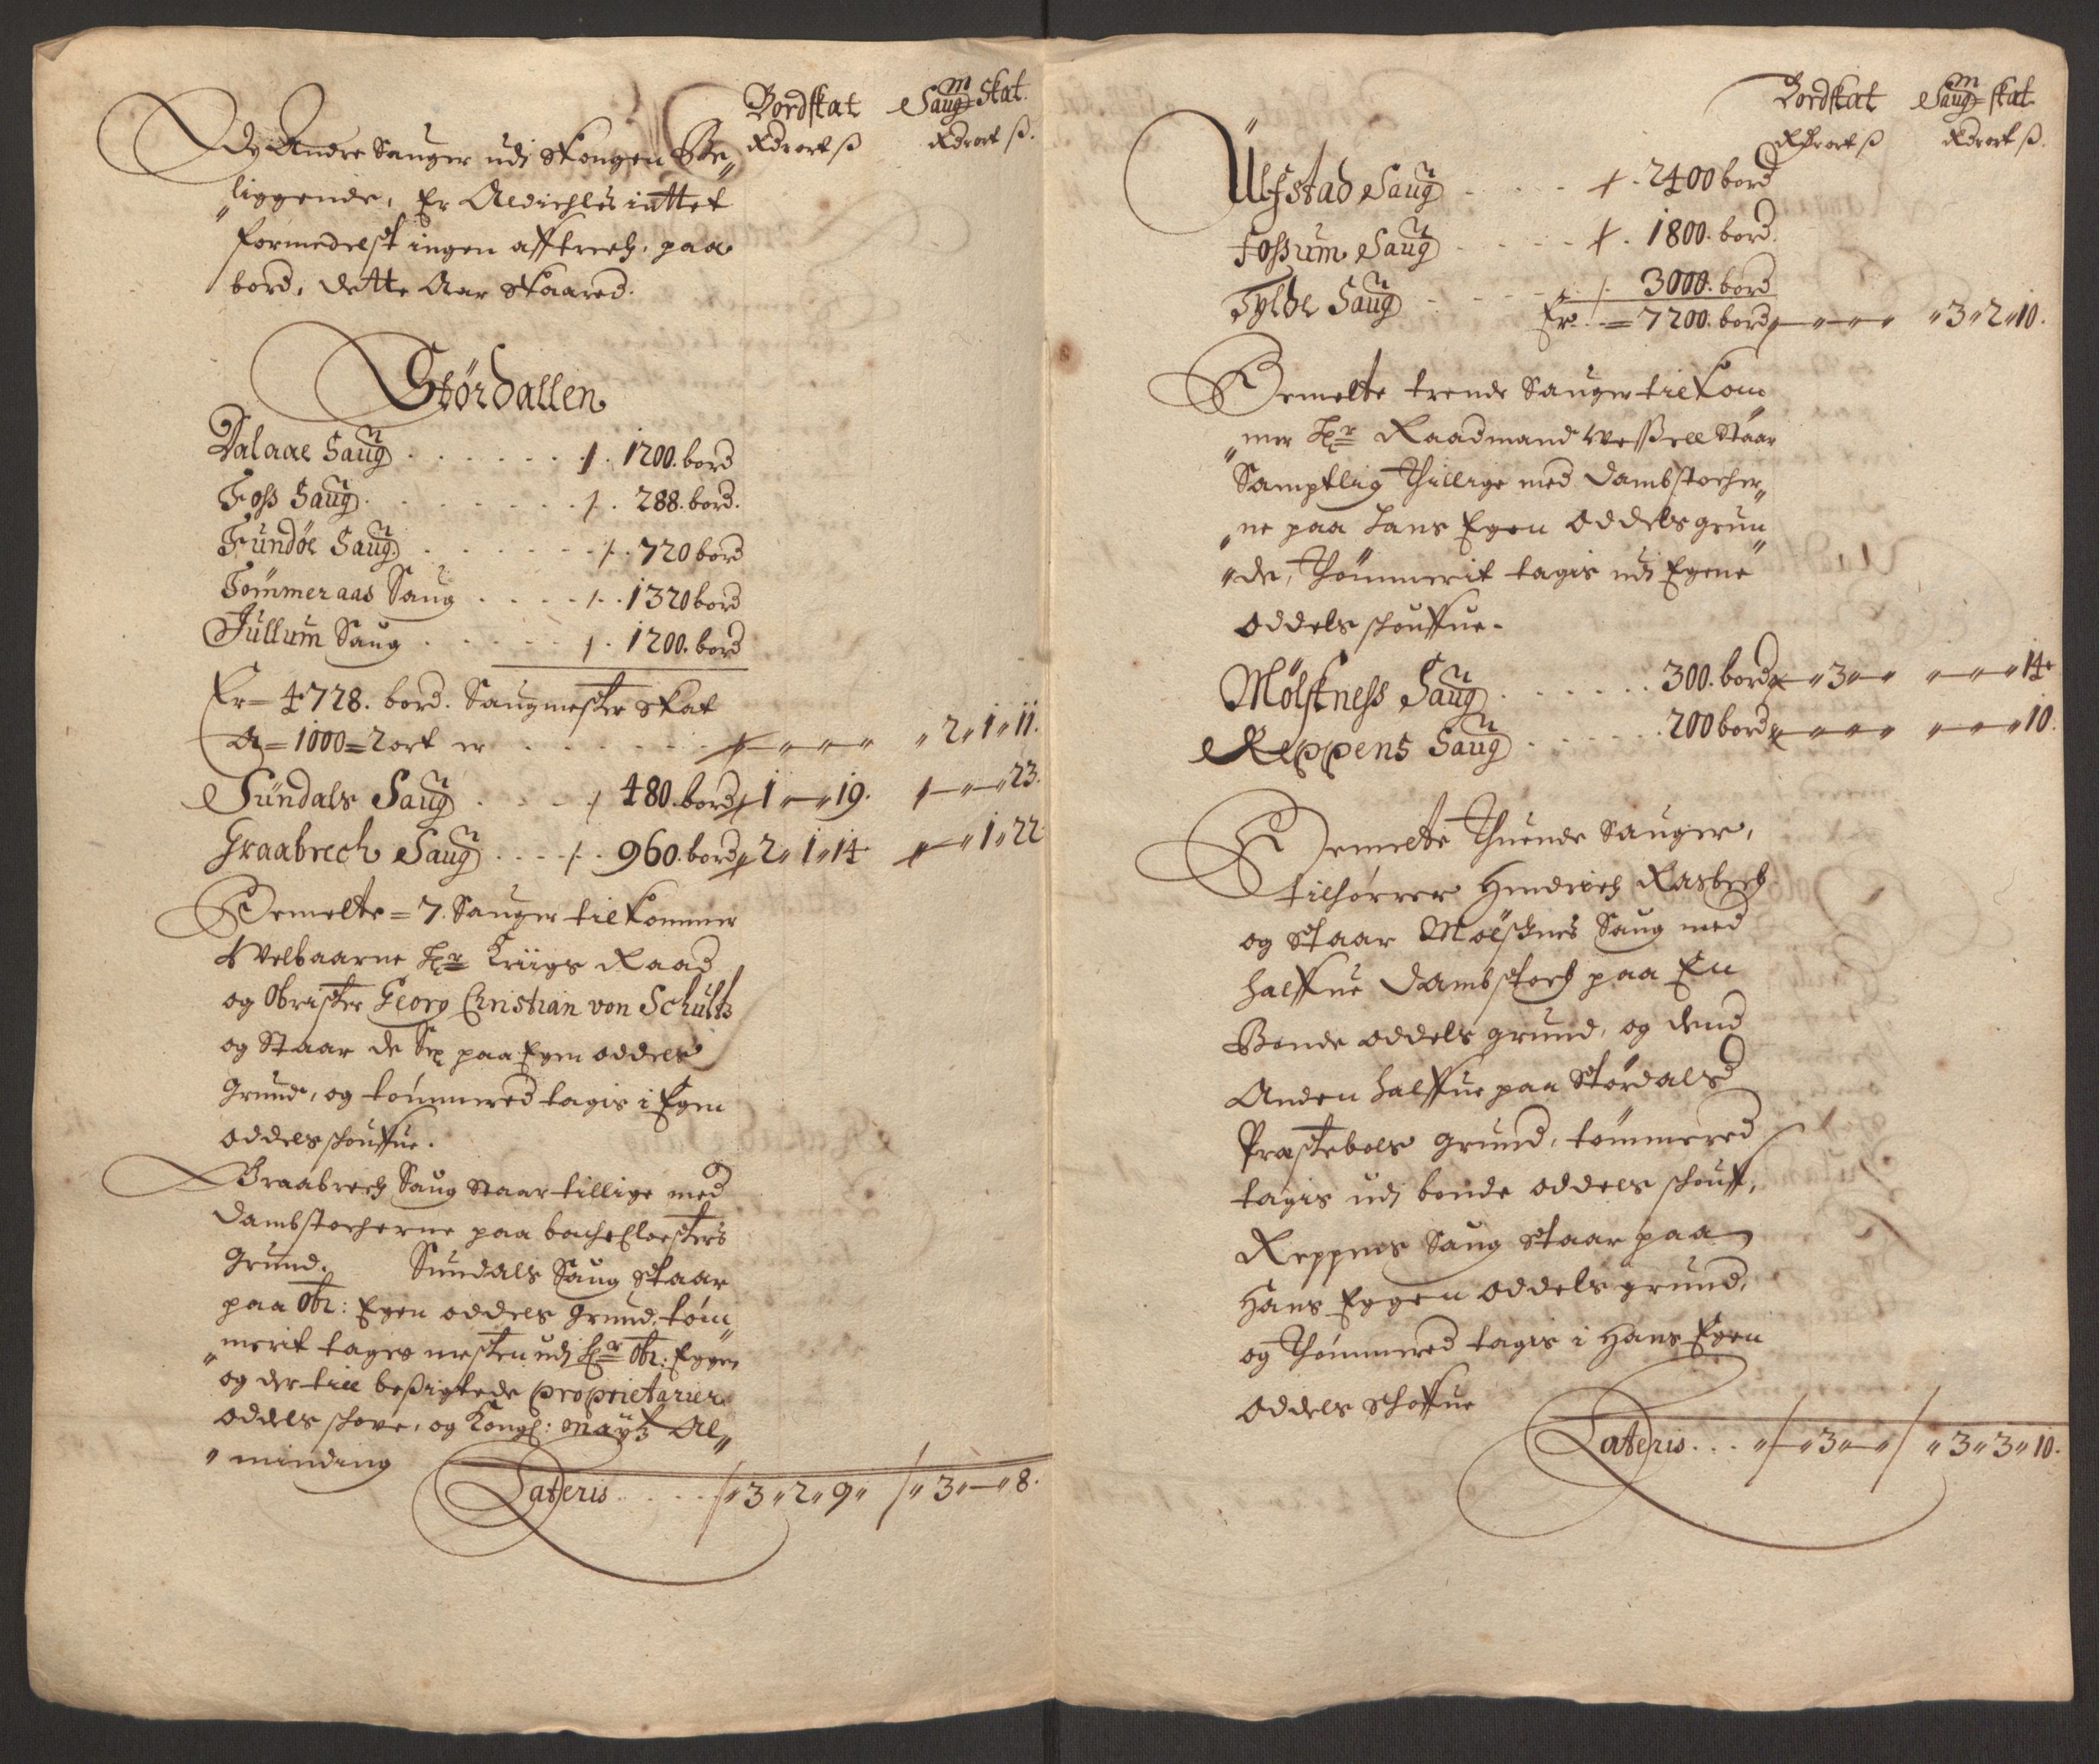 Bordskat Saugm Skat.
Rdr ort ß Rdr ort ß.
De Andre Sauger udj Skougen Be„
„liggende, Er Aldiehles inttet
formedelst ingen afftrech. paa
bord, dette Aar Skaared.
Størdallen
Dalaae Saug . . . . . . 1200. bord
Foss Saug . . . . . . 288. bord.
Fundøe Saug . . . . . . 720 bord
Tømmeraas Saug . . . . 1320 bord
Jullum Saug . . . . . . 1200. bord
Er = 4728. bord. Saugmester Skat
A = 1000 = 2 ort er . . . . . . „ 2 „ 1 „ 11.
Sundals Saug . . . . 480. bord 1 „ — „ 19. — „ — „ 23.
Graabrech Saug . . . . 960. bord „ 2 „ 1 „ 14 — „ 1 „ 22
Bemelte = 7. Sauger tilkommer
Welbaarne Hr Kriigs Raad
og Obrister Georg Christian von Schultz
og Staar de Sex paa Egen oddels
Grund, og tømmered tagis i Egen
oddels schouffue.
Graabrech Saug Staar tillige med
dambstocherne paa bache Closters
Grund. Sundals Saug Staar
paa Obr: Egen oddels Grund, tøm„
„merit tages mesten udj Hr Obr: Egen
og der till beßigtede proprietarier
oddels schove, og Kongl: Maytz Al„
„minding
Lateris . . . . „ 3 „ 2 „ 9 „ „ 3 „ — „ 8.
Bordskat Saugm skat
Rdr ort ß Rdr ort ß.
Ulfstad Saug . . . . 2400 bord
Fossum Saug . . . . 1800. bord.
Tylde Saug . . . . 3000. bord
Er . . = 7200. bord — „ — „ — „ 3 „ 2 „ 10.
Bemelte trende Sauger tilkom„
„mer Hr Raadmand Wessell Staar
Samptlig Thillige med dambstocher„
„ne paa Hans Egen Oddels grun„
„de, Thømmerit tagis udj Egene
oddels schouffue.
Mølskness Saug . . . . . . 300. bord — „ 3 „ — „ — „ — „ 14
Reppens Saug . . . . . . 200 bord — „ — „ — „ — „ 10.
Bemelte Thuende Sauger,
tilhørrer Hendrich Rasbech
og Staar Mølsknes Saug med
halffue dambstoch paa En
Bonde oddels grund, og dend
Anden halffue paa Størdals
Præstebols grund, tømmered
tagis udj bonde oddels schouff,
Reppens Saug Staar paa
Hans Eggen Oddels grund,
og Thømmered tagis i Hans Egen
oddels Schoffue
Lateris . . . „ — „ 3 „ — „ „ 3 „ 3 „ 10.